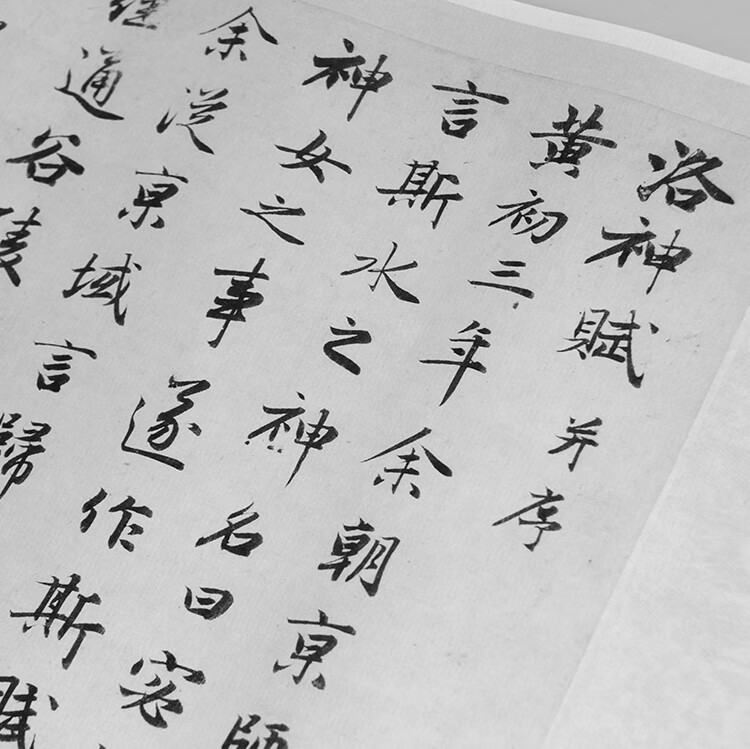 洛神賦 并序
黄初三年余朝京師
言斯水之神名曰宓
神女之事遂作斯賦
余從京域言歸
通谷